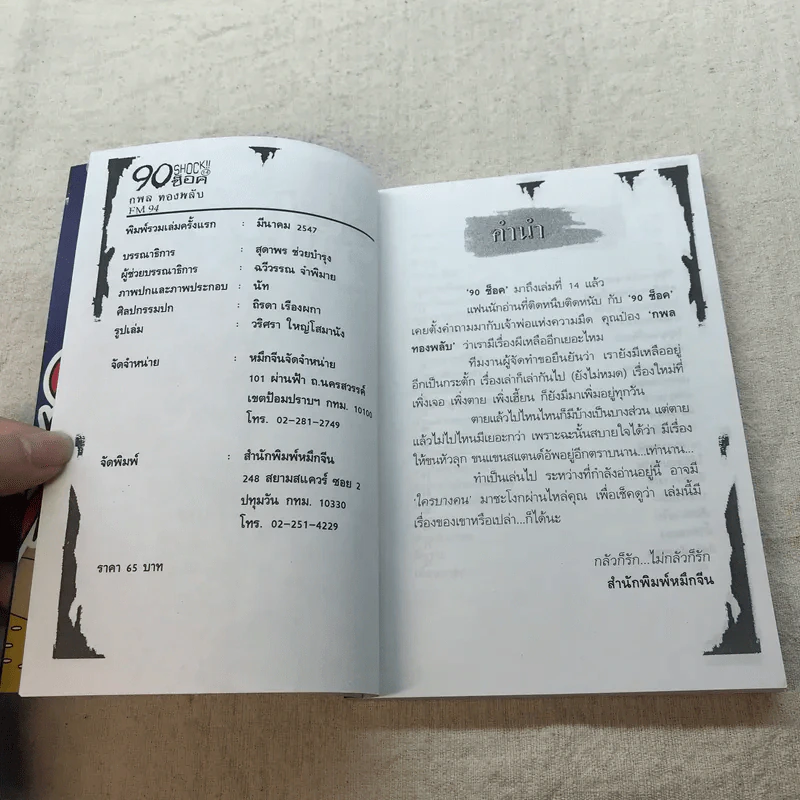 90 SHOCK!!
ช็อค
กพล ทองพลับ
FM.94
พิมพ์รวมเล่มครั้งแรก : มีนาคม 2547
บรรณาธิการ : สุดาพร ช่วยบำรุง
ผู้ช่วยบรรณาธิการ : ฉวีวรรณ จำพิมาย
ภาพปกและภาพประกอบ : นัท
ศิลปกรรมปก : ถิรดา เรืองผกา
รูปเล่ม : วริศรา ใหญ่โสมานัง
จัดจำหน่าย : หมึกจีนจัดจำหน่าย
101 ผ่านฟ้า ถ.นครสวรรค์
เขตป้อมปราบฯ กทม. 10100
โทร. 02-281-2749
จัดพิมพ์ : สำนักพิมพ์หมึกจีน
248 สยามสแควร์ ซอย 2
ปทุมวัน กทม. 10330
โทร. 02-251-4229
ราคา 65 บาท
คำนำ
'90 ช็อค' มาถึงเล่มที่ 14 แล้ว
แฟนนักอ่านที่ติดหนึบติดหนับ กับ '90 ช็อค'
เคยตั้งคำถามมากับเจ้าพ่อแห่งความมืด คุณป๋อง 'กพล
ทองพลับ' ว่าเรามีเรื่องผีเหลืออีกเยอะไหม
ทีมงานผู้จัดทำขอยืนยันว่า เรายังมีเหลืออยู่
อีกเป็นกระตั้ก เรื่องเล่าก็เล่ากันไป (ยังไม่หมด) เรื่องใหม่ที่
เพิ่งเจอ เพิ่งตาย เพิ่งเฮี้ยน ก็ยังมีมาเพิ่มอยู่ทุกวัน
ตายแล้วไปไหนไหนก็มีบ้างเป็นบางส่วน แต่ตาย
แล้วไม่ไปไหนมีเยอะกว่า เพราะฉะนั้นสบายใจได้ว่า มีเรื่อง
ให้ขนหัวลุก ขนแขนสแตนด์อัพอยู่อีกตราบนาน...เท่านาน...
ทำเป็นเล่นไป ระหว่างที่กำลังอ่านอยู่นี้ อาจมี
'ใครบางคน' มาชะโงกผ่านไหล่คุณ เพื่อเช็คดูว่า เล่มนี้มี
เรื่องของเขาหรือเปล่า...ก็ได้นะ
กลัวก็รัก...ไม่กลัวก็รัก
สำนักพิมพ์หมึกจีน